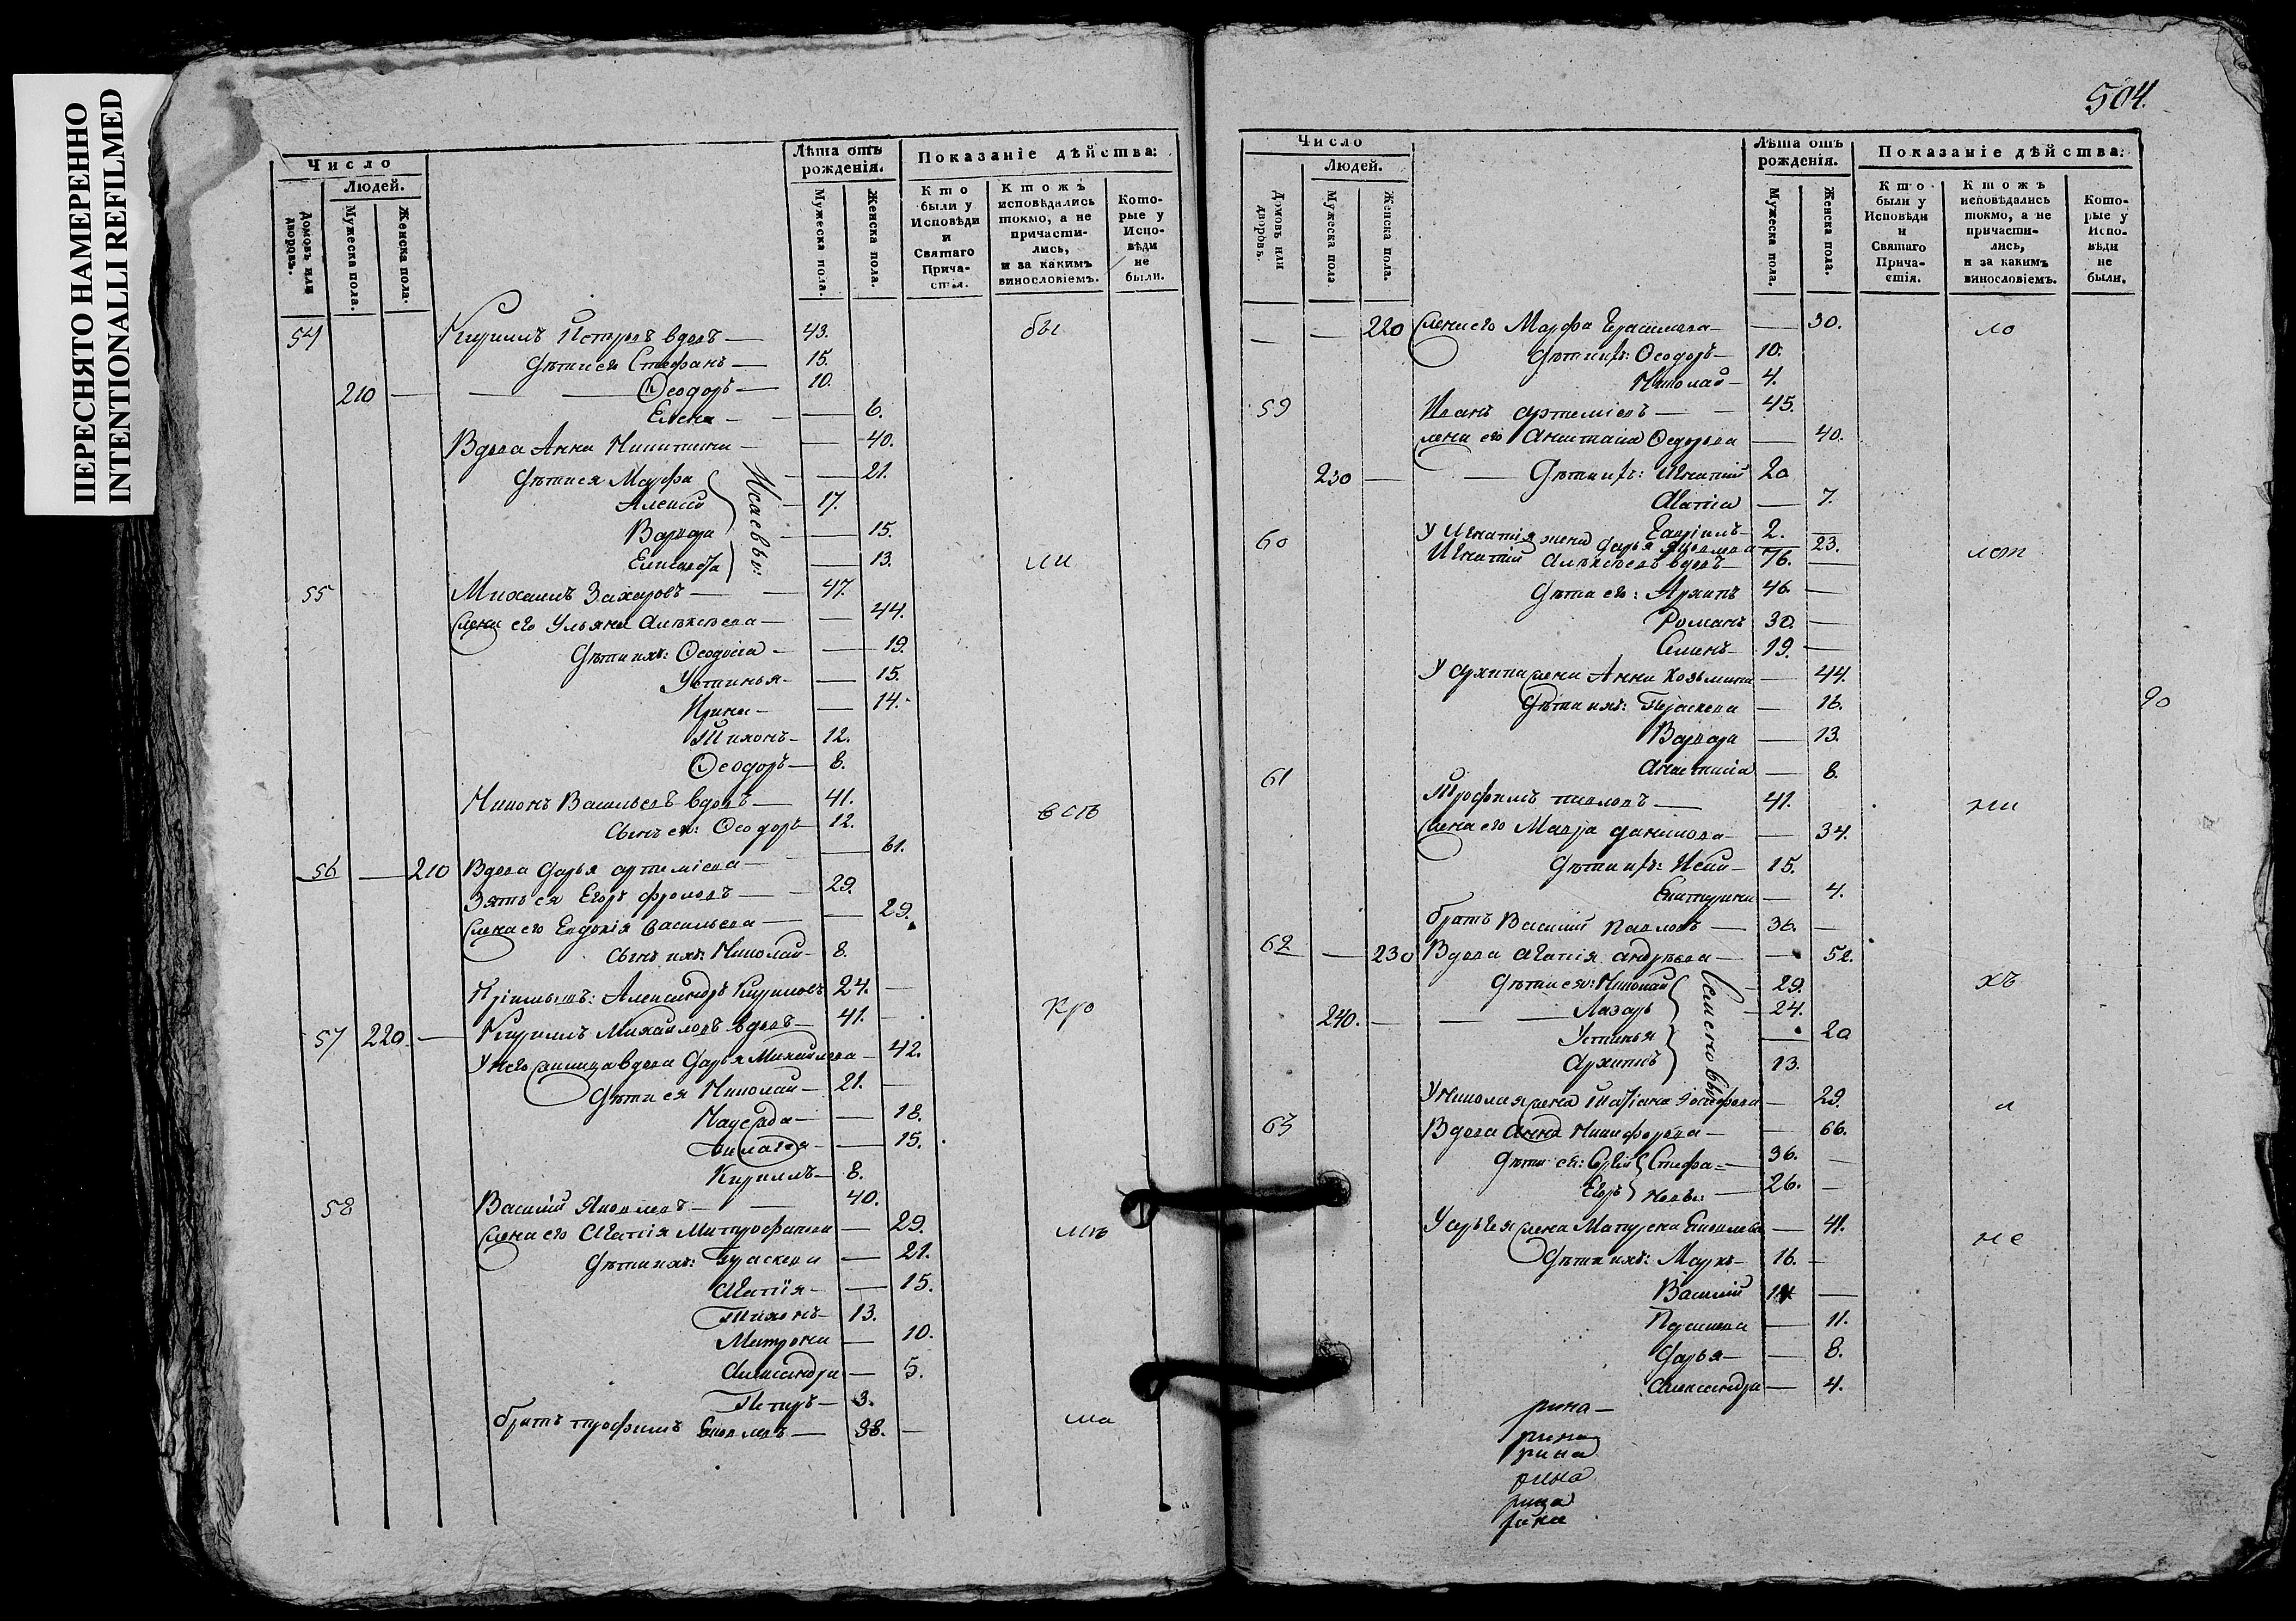 ПЕРЕСНЯТО НАМЕРЕННО
INTENTIONALLI REFILMED
Число
Людей.
Домовъ или дворовъ.
Мужеска пола.
Женска пола.
Лѣта отъ рожденія.
Мужеска пола.
Женска пола.
Показаніе дѣйства:
Кто были у Исповѣди и Святаго Причастія.
Ктожъ исповѣдались токмо, а не причастились, и за какимъ винословіемъ.
Которые у Исповѣди не были.
54 Кирилъ Петровъ вдовъ — 43. бы
Дѣти его Стефанъ — 15.
210 — Ѳеодоръ — 10.
Елена — 6.
Вдова Анна Никитина — 40.
Дѣти ея Марфа — 21.
Алексѣй — 17.
Варвара — 15.
Елисавета — 13. ли
Исаевы:
55 Михаилъ Захаровъ — 47.
Жена его Ульяна Алексѣева — 44.
Дѣти ихъ: Ѳеодосіа — 19.
Устинья — 15.
Ирина — 14.
Тихонъ — 12.
Ѳеодоръ — 8.
Никонъ Васильевъ вдовъ — 41. всѣ
Сынъ его: Ѳеодоръ 12.
56 — 210 Вдова Дарья Артеміева — 61.
Зять ея Егоръ Фроловъ — 29.
Жена его Евдокія Васильева — 29.
Сынъ ихъ: Николай — 8.
Пріемышъ: Александръ Кириловъ 24. —
57 220. — Кирилъ Михайловъ вдовъ — 41. — кро
У него вдова Дарья Михайлова — 42.
Дѣти ея Николай — 21. —
18.
15.
Кирилъ — 8.
58 Василій Яковлевъ — 40.
Жена его Агапія Митрофанова — 29. мѣ
Дѣти ихъ: Параскева — 21.
Агапія — 15.
Тихонъ — 13.
Матрона — 10.
Александра — 5.
Петръ — 3.
Братъ Трофимъ Яковлевъ — 38. — ма
504.
Число
Людей.
Домовъ или дворовъ.
Мужеска пола
Женска пола.
Лѣта отъ рожденія.
Мужеска пола.
Женска пола.
Показаніе дѣйства:
Кто были у Исповѣди и Святаго Причастія.
Ктожъ исповѣдались токмо, а не причастились, и за какимъ винословіемъ.
Которые у Исповѣди не были.
— — 220 Жена его Марфа Герасимова — 30. ло
Дѣти ихъ: Ѳеодоръ — 10.
Николай — 4.
59 Иванъ Артеміевъ — 45.
Жена его Анастасіа Ѳедорова — 40.
230 — Дѣти ихъ: Игнатій 20
Агапіа — 7.
Гавріилъ — 2.
У Игнатія жена Дарья Яковлева 23.
60 Игнатій Алексѣевъ вдовъ — 76. — лѣт
Дѣти его: Архипъ 46 —
Романъ 30. —
Семенъ — 19. —
У Архипа жена Анна Козьмина — 44.
Дѣти ихъ: Параскева — 16.
Варвара — 13.
Анастасіа — 8.
20
61 Трофимъ Павловъ — 41. ни
Жена его Мавра Данилова — 34.
Дѣти ихъ: Исай — 15.
Екатерина — 4.
Братъ Василій Павловъ — 36. —
62 — 230 Вдова Агапія Андрѣева — 52.
Дѣти ея: Николай — 29. хъ
240. — Лазарь — 24.
Устинья — 20
Архипъ 13.
Семеновы
У Николая жена Татіана Іосифова — 29. и
63 Вдова Анна Никифорова — 66.
Дѣти ея: Сергѣй Стефа= — 36. —
Егоръ новы: — 26. —
У Сергѣя жена Матрена Яковлева — 41. не
Дѣти ихъ: Маркъ — 16. —
Василій —
Параскева — 11.
Дарья — 8.
Александра — 4.
рина —
рина
рина
рина
рина
рина